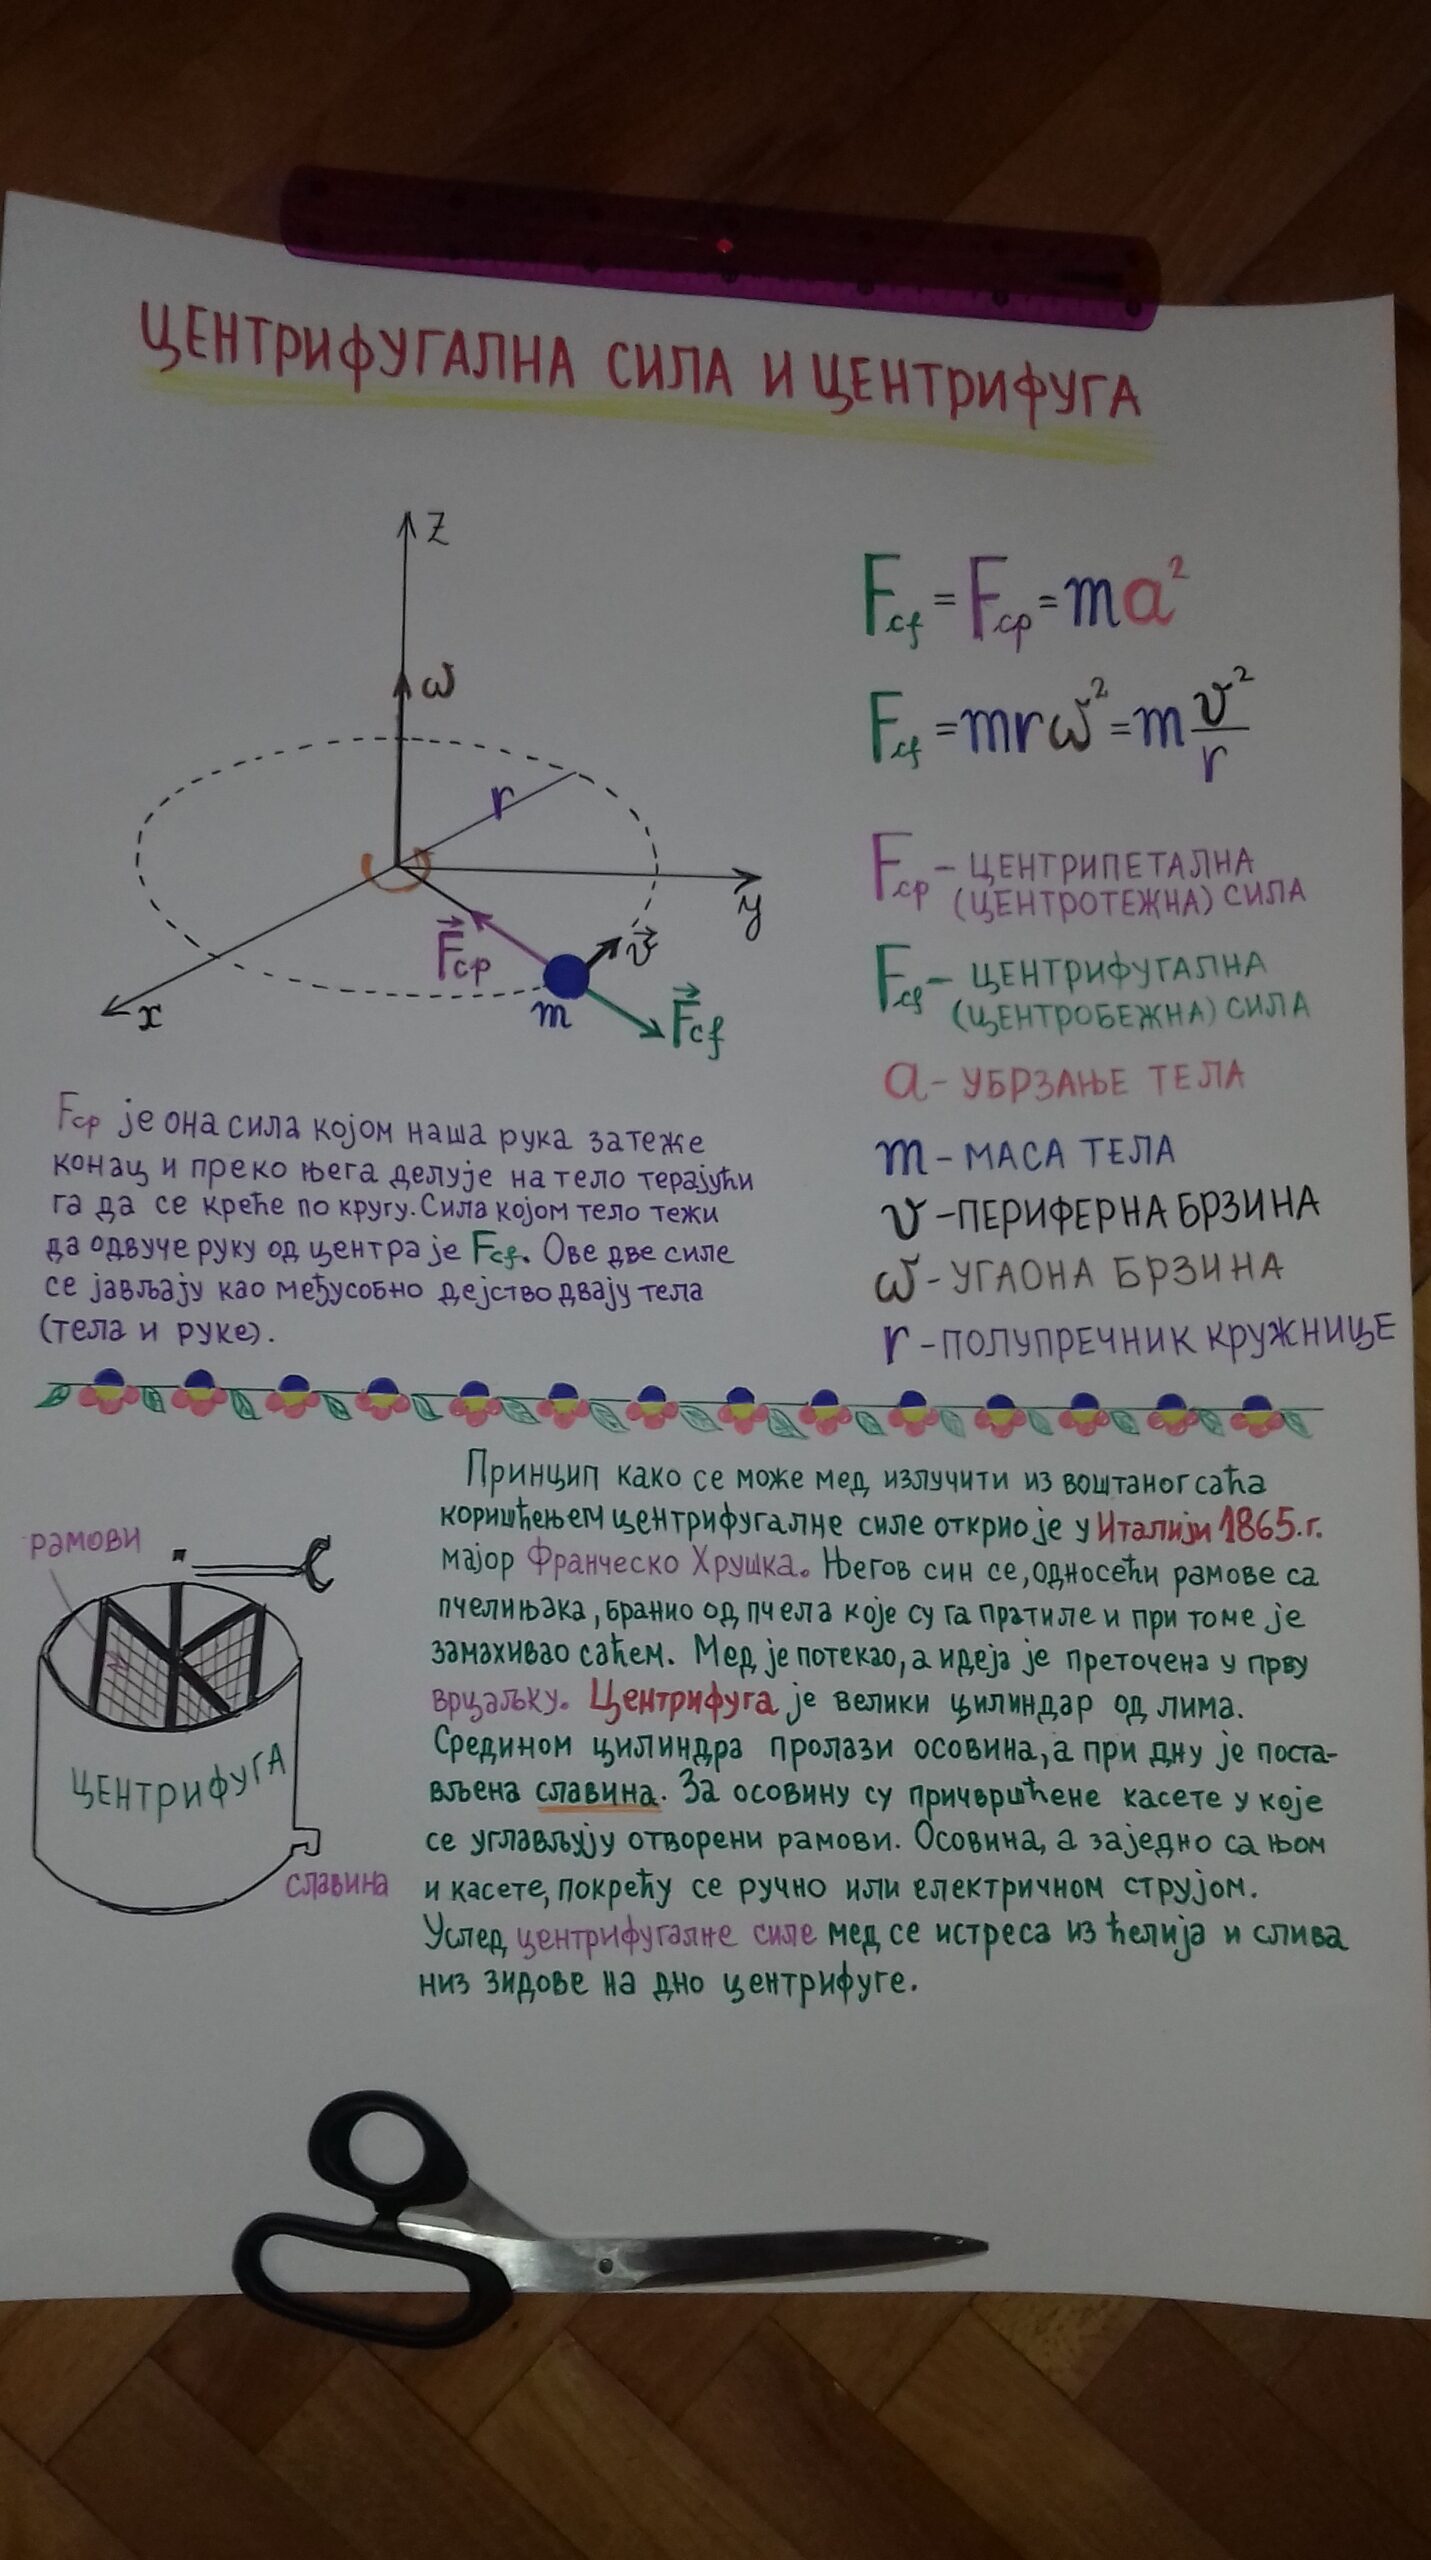 ЦЕНТРИФУГАЛНА СИЛА И ЦЕНТРИФУГА
z
ω
r
y
x
F⃗cp
v⃗
m
F⃗cf
Fcf = Fcp = ma²
Fcf = mrω² = m v²/r
Fcp – ЦЕНТРИПЕТАЛНА
(ЦЕНТРОТЕЖНА) СИЛА
Fcf – ЦЕНТРИФУГАЛНА
(ЦЕНТРОБЕЖНА) СИЛА
a – УБРЗАЊЕ ТЕЛА
m – МАСА ТЕЛА
v – ПЕРИФЕРНА БРЗИНА
ω – УГАОНА БРЗИНА
r – ПОЛУПРЕЧНИК КРУЖНИЦЕ
Fcp је она сила којом наша рука затеже
конац и преко њега делује на тело терајући
га да се креће по кругу. Сила којом тело тежи
да одвуче руку од центра је Fcf. Ове две силе
се јављају као међусобно дејство двају тела
(тела и руке).
Принцип како се може мед излучити из воштаног саћа
коришћењем центрифугалне силе открио је у Италији 1865. г.
мајор Франческо Хрушка. Његов син се, односећи рамове са
пчелињака, бранио од пчела које су га пратиле и при томе је
замахивао саћем. Мед је потекао, а идеја је преточена у прву
врцаљку. Центрифуга је велики цилиндар од лима.
Средином цилиндра пролази осовина, а при дну је поста-
вљена славина. За осовину су причвршћене касете у које
се углављују отворени рамови. Осовина, а заједно са њом
и касете, покрећу се ручно или електричном струјом.
Услед центрифугалне силе мед се истреса из ћелија и слива
низ зидове на дно центрифуге.
рамови
ЦЕНТРИФУГА
славина